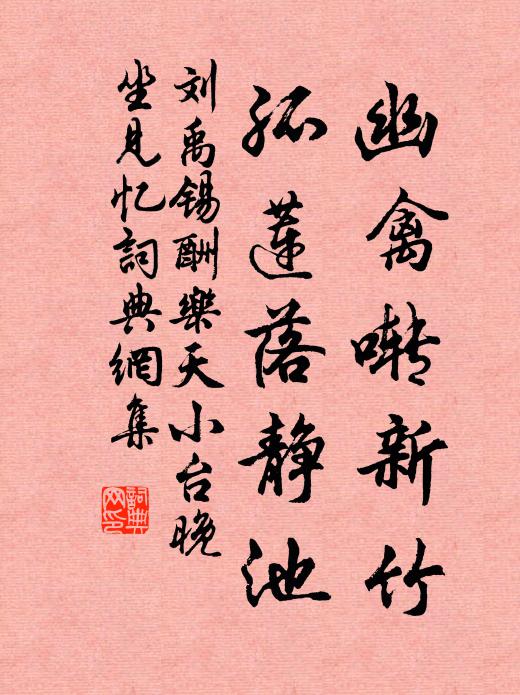 幽禽啭新竹
孤莲落静池
刘禹锡酬樂天小台晚
坐見忆詞典網集
詞典
网印